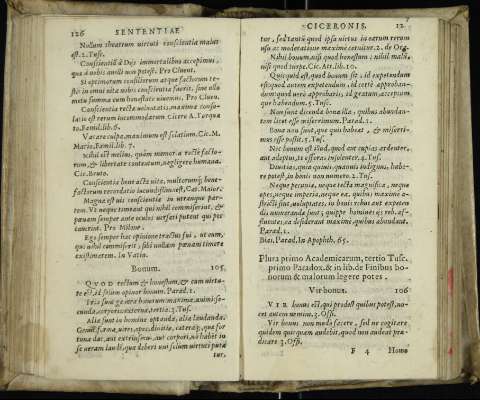 126 SENTENTIAE
Nullum theatrum virtuti conscientia maius
est. 2. Tusc.
Conscientiā à Diis immortalibus accepimus,
quæ à nobis auelli non potest. Pro Cluent.
Si optimorum consiliorum atque factorum te-
stis in omni vita nobis conscientia fuerit, sine ullo
metu summa cum honestate viuemus. Pro Cluent.
Conscientia rectæ voluntatis, maxima conso-
latio est rerum incommodarum Cicero A. Torqua
to. Famil. lib. 6.
Vacare culpa, maximum est solatium. Cic. M.
Mario, Famil. lib. 7.
Nihil est melius, quàm memoria rectè facto-
rum, & libertate contentum, negligere humana.
Cic. Bruto.
Conscientia bene actæ vitæ, multorumq; bene-
factorum recordatio iucundissima est. Cat. Maior.
Magna est vis conscientiæ in utranque par-
tem. Vt neque timeant qui nihil commiserint, &
pœnam semper ante oculos versari putent qui pec-
cauerint. Pro Milone.
Ego semper hac opinione tractus fui, ut eum,
qui nihil commiserit, sibi nullam pœnam timere
existimarem. In Vatin.
Bonum. 105.
QVOD rectum & honestum, & cum virtu-
te est, id solum opinor bonum. Parad. 1.
Tria sunt genera bonorum: maxima, animi: se-
cunda, corporis: externa, tertia. 5. Tusc.
Alia sunt in homine optanda, alia laudanda.
Genus, forma, vires, opes, diuitiæ, cæteraq; quæ for
tuna dat, aut extrinsecus, aut corpori, nō habēt in
se ueram laudē, quæ deberi uni solum virtuti puta
tur,
CICERONIS. 12
tur, sed tantū quòd ipsa virtus in earum rerum
usu ac moderatione maximè cernitur. 2. de Org.
Nihil bonum, nisi quod honestum: nihil malū,
nisi quod turpe. Cic. Att. lib. 10.
Quicquid est, quod bonum sit, id expetendum
est: quod autem expetendum, id certè approban-
dum: quod verò approbaris, id gratum, acceptum
que habendum. 5. Tusc.
Non sunt dicenda bona illa, quibus abundan-
tem licet esse miserrimum. Parad. 1.
Bona non sunt, quæ quis habeat, & miserri-
mus esse possit. 5. Tusc.
Nec bonum est illud, quod aut cupias ardenter,
aut adeptus, te efferas insolenter. 4. Tusc.
Diuitias, quia quiuis, quamuis indignus, habe-
re potest, in bonis non numero. 2. Tus.
Neque pecunia, neque tecta magnifica, neque
opes, neque imperia, neque eæ, quibus maximè a-
stricti sunt, uoluptates, in bonis rebus aut expeten
dis numerandæ sunt; quippe homines iis reb. af-
fluentes, ea desiderant maximè, quibus abundant.
Parad. 1.
Bias. Parad. In Apophth. 65.
Plura primo Academicarum, tertio Tusc.
primo Paradox. & in lib. de Finibus bo-
norum & malorum legere potes.
Vir bonus. 106
VIR bonus est, qui prodest quibus potest, no-
cet autem nemini. 3. Offi.
Vir bonus non modò facere, sed ne cogitare
quidem quicquam audebit, quod non audeat præ-
dicare 3. Offi.
F 4 Homo